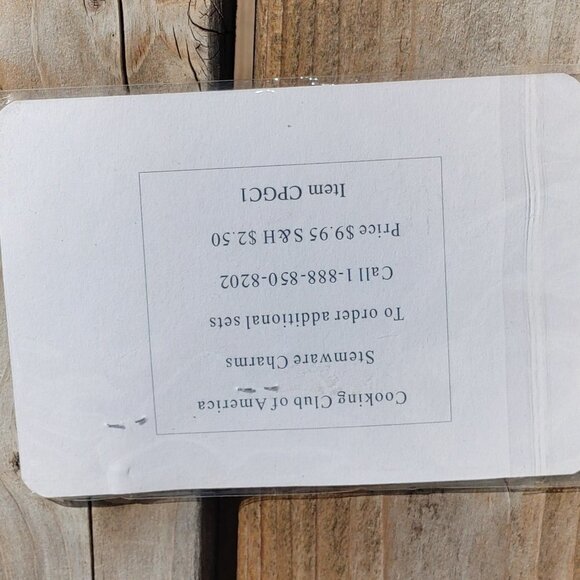 Cooking Club of America
Stemware Charms
To order additional sets
Call 1-888-850-8202
Price $9.95 S&H $2.50
Item CPGC1